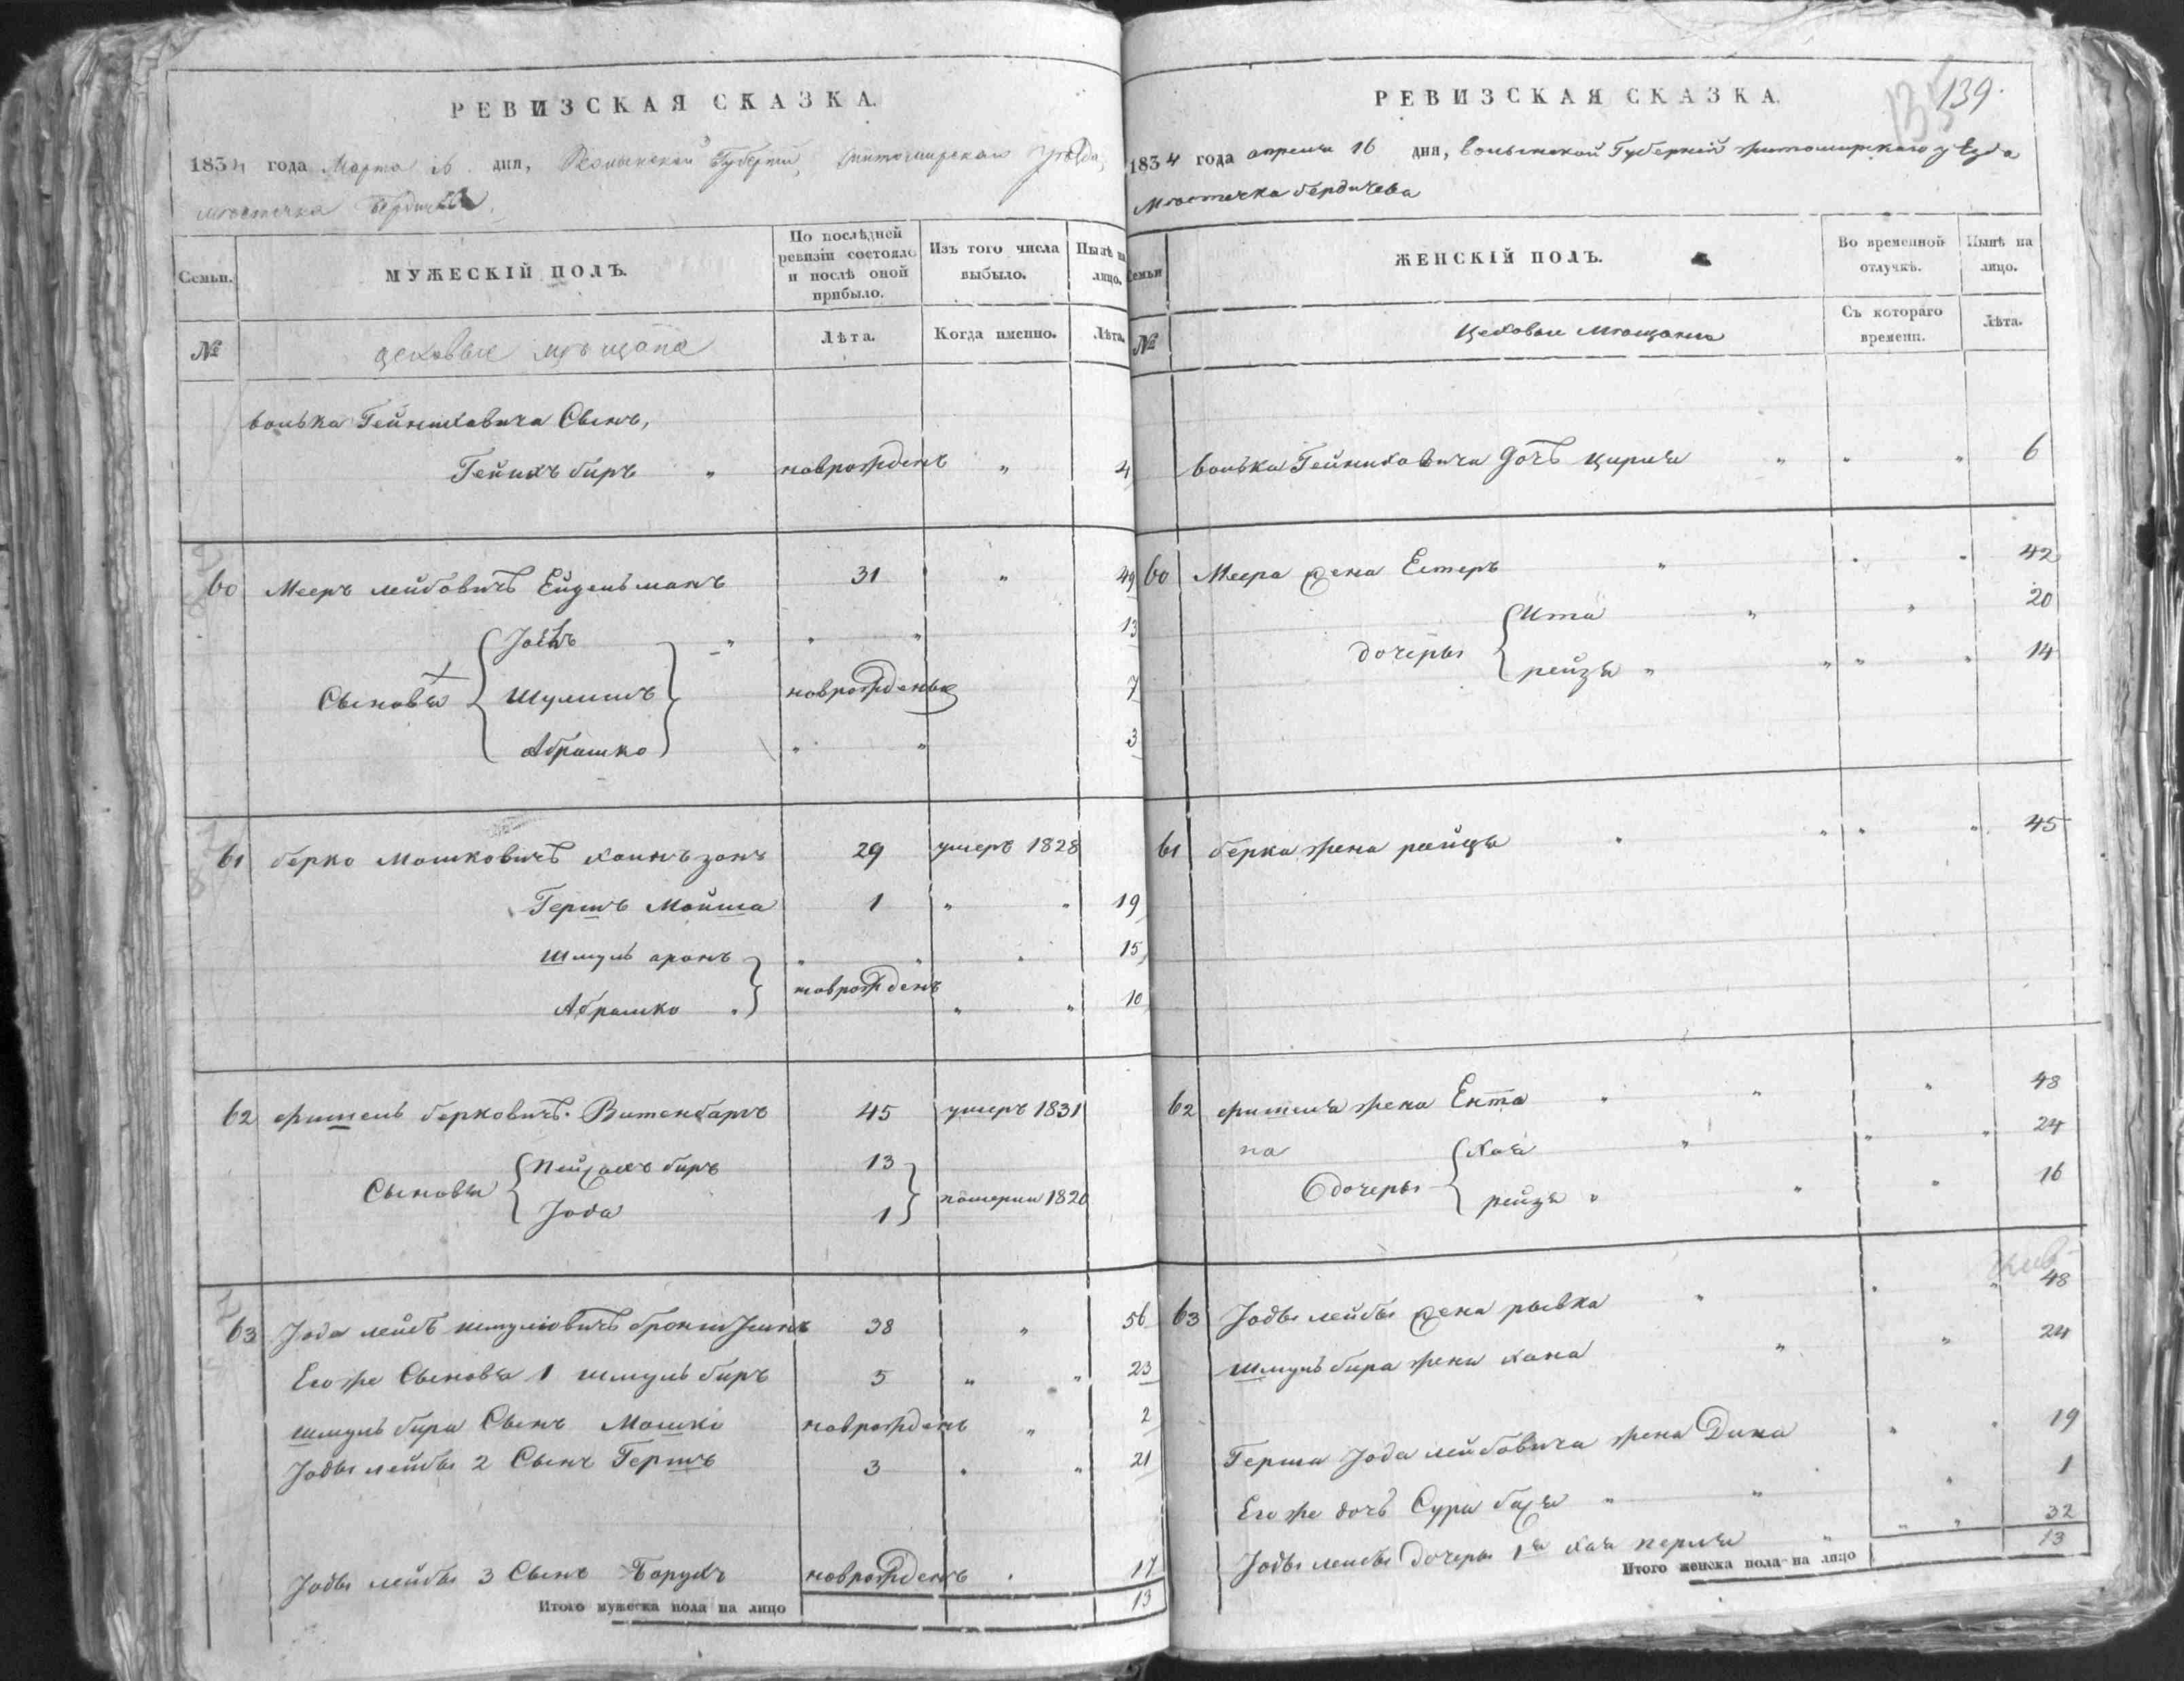 РЕВИЗСКАЯ СКАЗКА.
1834 года Марта 16 дня, Волынской Губернии, Житомирскаго уѣзда,
мѣстечка Бердичева
Семьи.
МУЖЕСКІЙ ПОЛЪ.
По послѣдней ревизіи состояло и послѣ оной прибыло.
Изъ того числа выбыло.
Нынѣ на лицо.
№
цеховые мѣщане
Лѣта.
Когда именно.
Лѣта.
Волька Гейниховича Сынъ,
Гейнихъ биръ " новорожденъ " 4
60 Мееръ лейбовичъ Ейдельманъ 31 " 49
Сыновья
13
Шулимъ новорожденые 7
Абрашко " " 3
61 берко Мошковичъ 29 умеръ 1828
Гершъ Мойша 1 " " 19
Шмуль аронъ " " 15
новорожденъ
Абрашко " " 10
62 Фишель берковичъ 45 умеръ 1831
Сыновья
Пейсахъ биръ 13
померли 1820
Іода 1
63 Іода лейбъ шмулёвичъ 38 " 56
Его же Сыновья 1 шмуль биръ 5 " " 23
Шмуль бира Сынъ Мошко новорожденъ " 2
Іоды лейбы 2 Сынъ Гершъ 3 " " 21
Іоды лейбы 3 Сынъ Борухъ новорожденъ " 17
Итого мужеска пола на лицо 13
РЕВИЗСКАЯ СКАЗКА.
139.
1834 года апреля 16 дня, Волынской Губерніи житомирскаго уезда
мѣстечка бердичева
Семьи
ЖЕНСКІЙ ПОЛЪ.
Во временной отлучкѣ.
Нынѣ на лицо.
№
Цеховые мѣщане
Съ котораго времени.
Лѣта.
Волька Гейниховича дочь Цирля " " " 6
60 Меера жена Естеръ " " " 42
дочеры
Ита " " 20
рейзя " " " " 14
61 берка жена райця " " " " 45
62 фишеля жена Ента " " " 48
дочеры
хая " " " 24
рейзя " " " 16
63 Іоды лейбы жена рывка " " " 48
Шмуль бира жена хана " " 24
Герша Іода лейбовича жена Дина " " 19
Его же дочь Сура бася " " " 1
Іоды лейбы дочеры 1я хая перля " " " 32
Итого женска пола на лицо 13